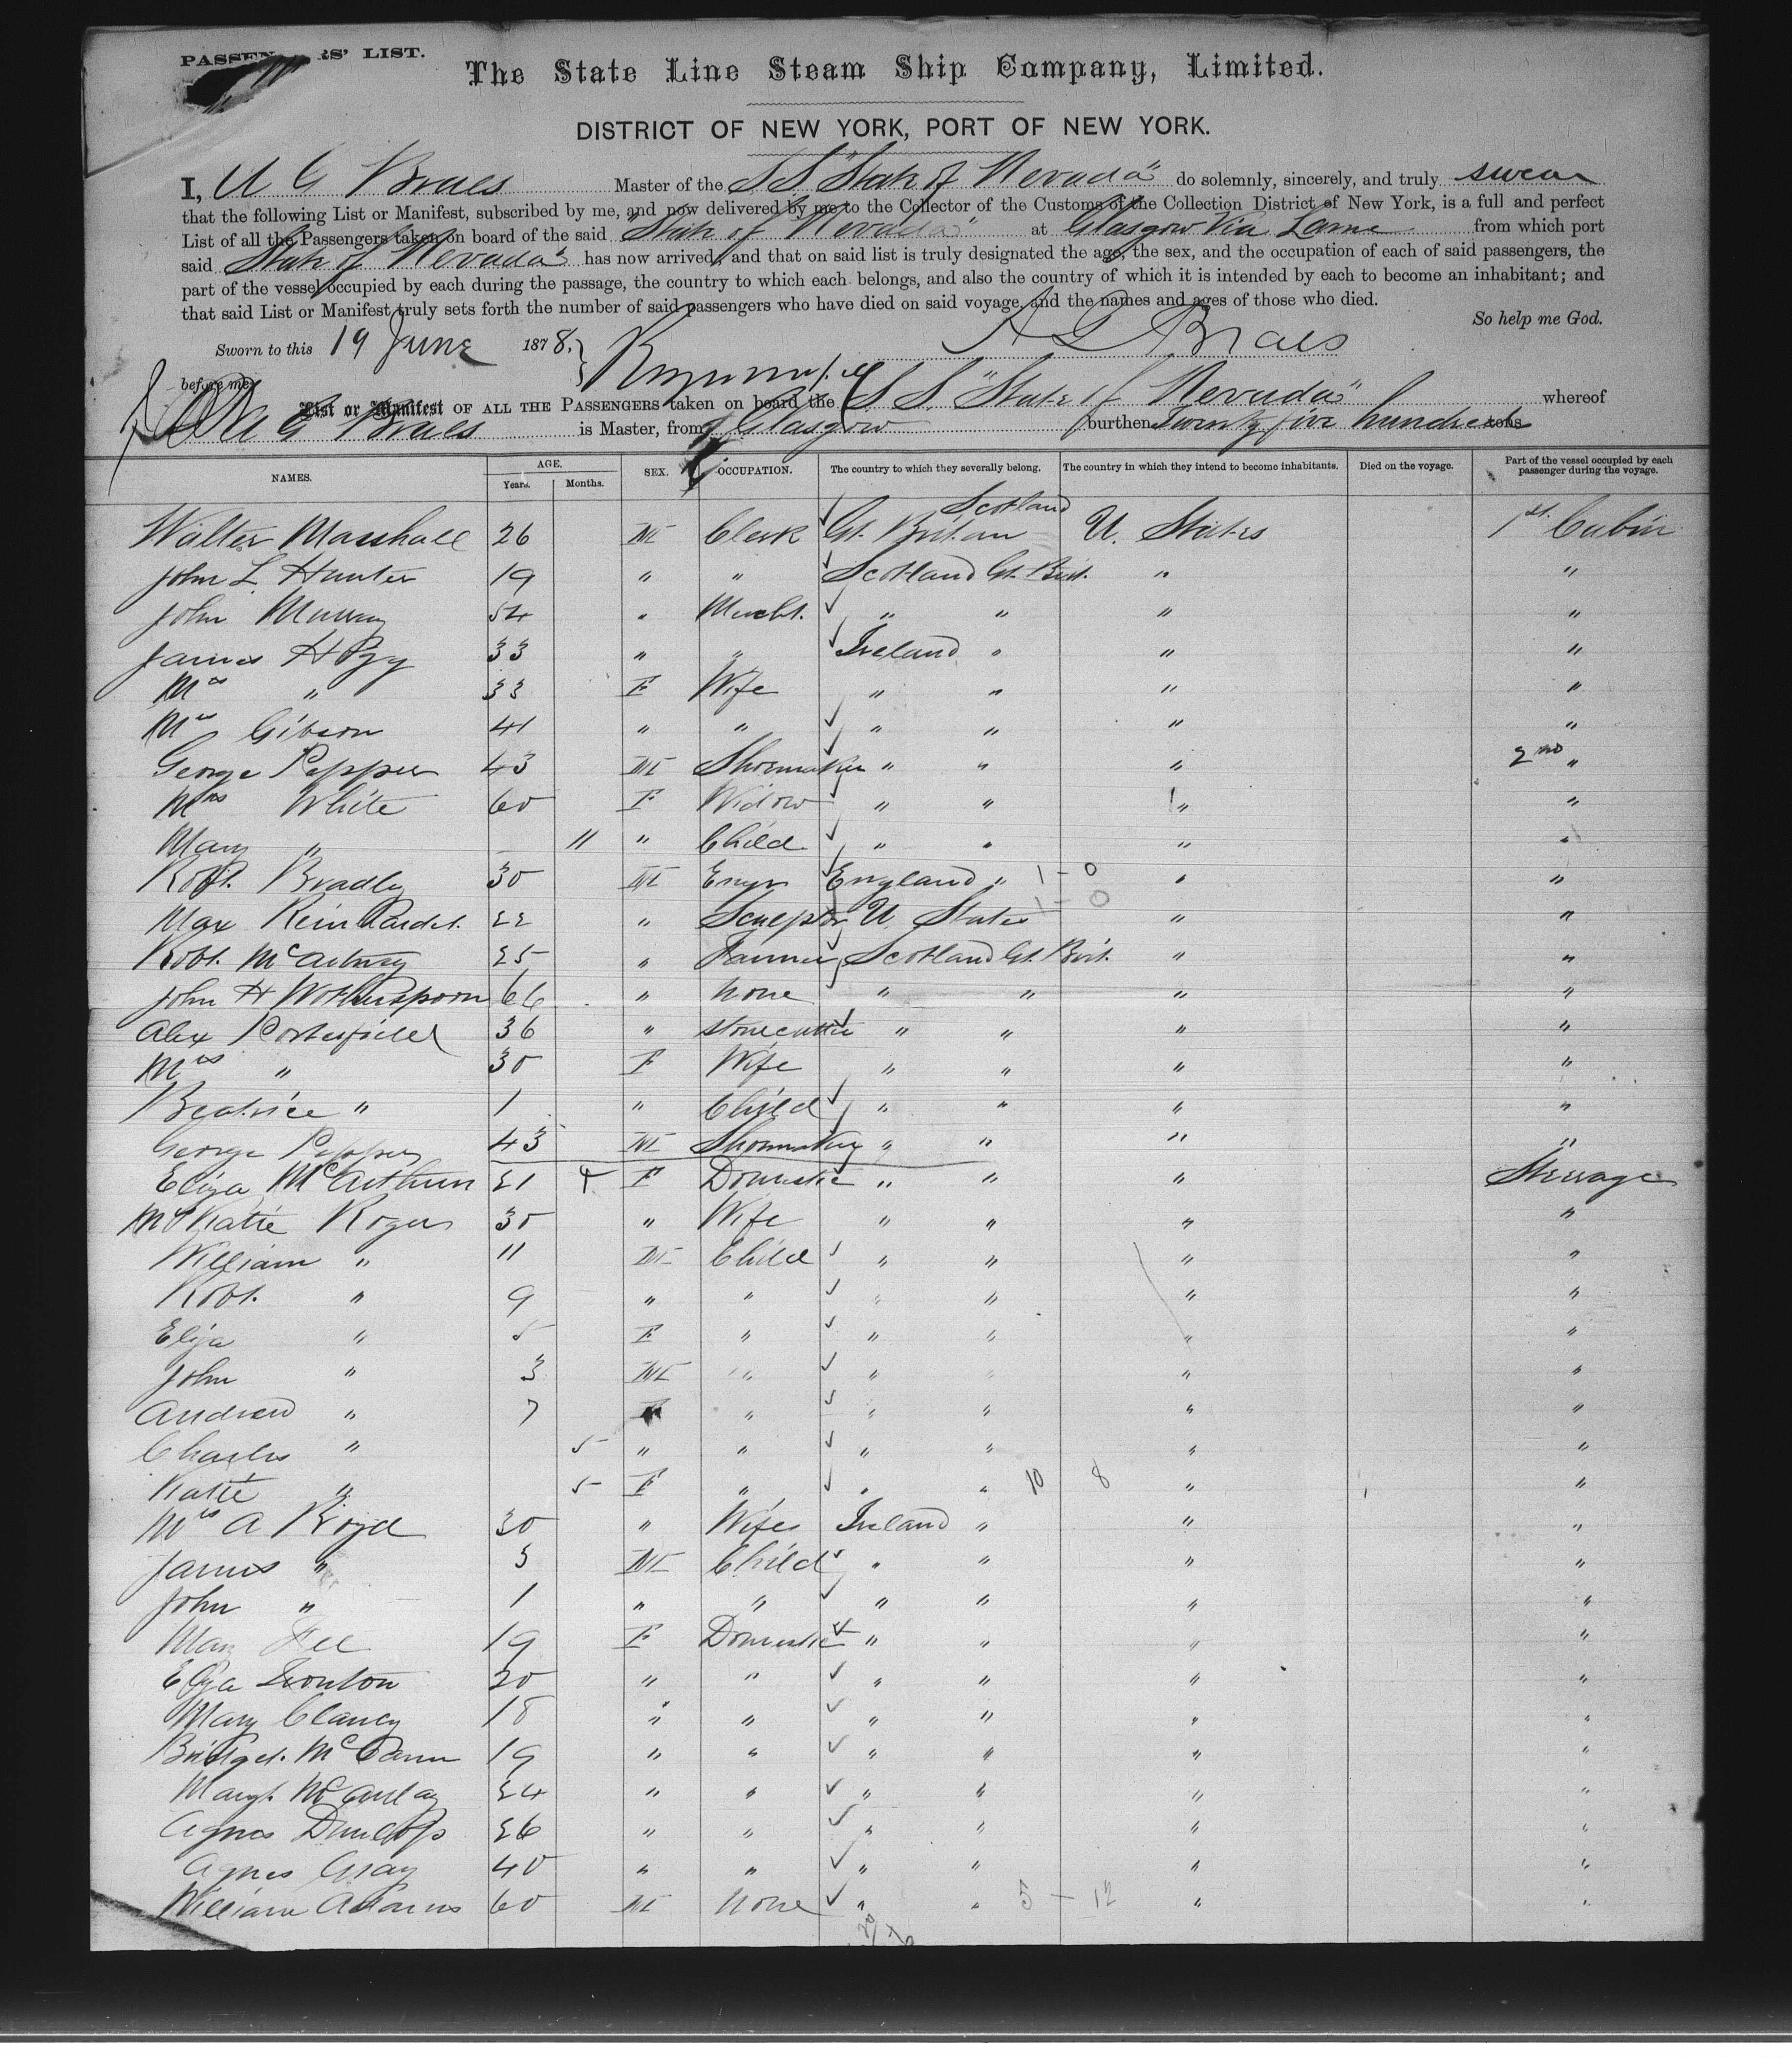 PASSEN RS' LIST.
The State Line Steam Ship Company, Limited.
DISTRICT OF NEW YORK, PORT OF NEW YORK.
I, A G Braes Master of the SS "State of Nevada" do solemnly, sincerely, and truly swear
that the following List or Manifest, subscribed by me, and now delivered by me to the Collector of the Customs of the Collection District of New York, is a full and perfect
List of all the Passengers taken on board of the said "State of Nevada" at Glasgow Via Larne from which port
said State of Nevada has now arrived, and that on said list is truly designated the age, the sex, and the occupation of each of said passengers, the
part of the vessel occupied by each during the passage, the country to which each belongs, and also the country of which it is intended by each to become an inhabitant; and
that said List or Manifest truly sets forth the number of said passengers who have died on said voyage, and the names and ages of those who died.
So help me God.
Sworn to this 19 June 1878, A G Braes
before me
List or Manifest OF ALL THE PASSENGERS taken on board the S S. "State of Nevada" whereof
A G Braes is Master, from Glasgow burthen Twenty five hundred tons
NAMES. AGE. Years. Months. SEX. OCCUPATION. The country to which they severally belong. The country in which they intend to become inhabitants. Died on the voyage. Part of the vessel occupied by each passenger during the voyage.
Scotland
Walter Marshall 26 M Clerk Gt. Britain U. States 1st Cabin
John L Hunter 19 " " Scotland Gt. Brit. " "
John Murray 54 " Mercht. " " " "
James Hogg 33 " " Ireland " " "
Mrs " 33 F Wife " " " "
Mrs Gibson 41 " " " " " "
George Pepper 43 M Shoemaker " " " 2nd "
Mrs White 60 F Widow " " " "
Mary " 11 " Child " " " "
Robt. Bradley 30 M Engr England " 1 - 0 " "
Max Reinhardt. 22 " Sculptor U. States 1 - 0 " "
Robt. McCartney 25 " Farmer Scotland Gt. Brit. " "
John H Wotherspoon 66 " None " " " "
Alex Porterfield 36 " Stonecutter " " " "
Mrs " 30 F Wife " " " "
Beatrice " 1 " Child " " " "
George Pepper 43 M Shoemaker " " " "
Eliza McArthur 21 F Domestic " " " Steerage
Mrs Katie Roger 30 " Wife " " " "
William " 11 M Child " " " "
Robt. " 9 " " " " " "
Eliza " 5 F " " " " "
John " 3 M " " " " "
Andrew " 7 " " " " "
Charles " 5 " " " " " "
Katie " 5 F " " " 10 8 " "
Mrs A Boyd 30 " Wife Ireland " " "
James " 3 M Child " " " "
John " 1 " " " " " "
Mary Fee 19 F Domestic " " " "
Eliza 20 " " " " " "
Mary Clancy 18 " " " " " "
Bridget. McCann 19 " " " " " "
Margt. McAulay 24 " " " " " "
Agnes Dunlop 26 " " " " " "
Agnes Gray 40 " " " " " "
William Adams 60 M None " " 5 - 12 " "